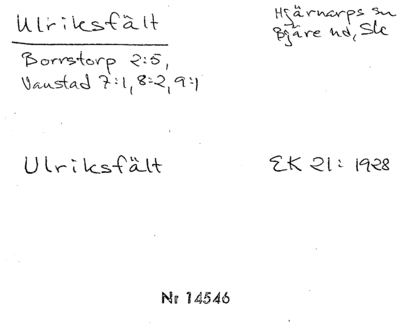 Ulriksfält
Hjärnarps sn
Bjäre hd, Sk
Borrstorp 2:5,
Vanstad 7:1, 8:2, 9:1
Ulriksfält
EK 21: 1928
Nr 14546